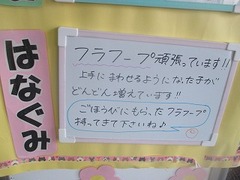 はなぐみ
フラフープ頑張っています!!
上手にまわせるようになった子が
どんどん増えています!!
ごほうびにもらったフラフープ
持ってきて下さいね♪